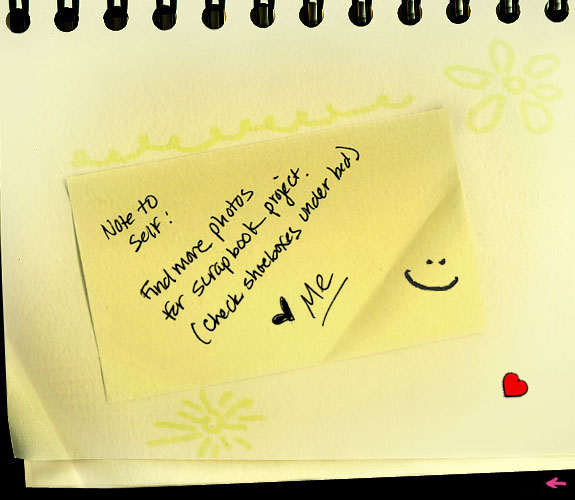 Note to
Self:
Find more photos
for scrapbook project.
(check shoeboxes under bed)
♥ Me